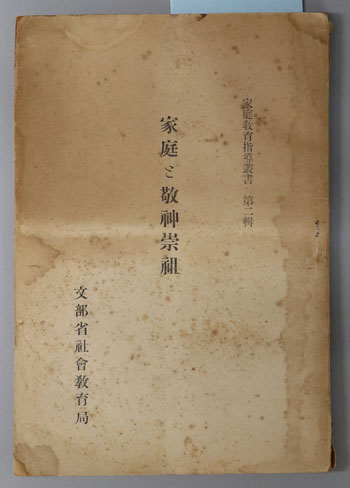 家庭教育指導叢書　第二輯
家庭と敬神崇祖
文部省社會教育局